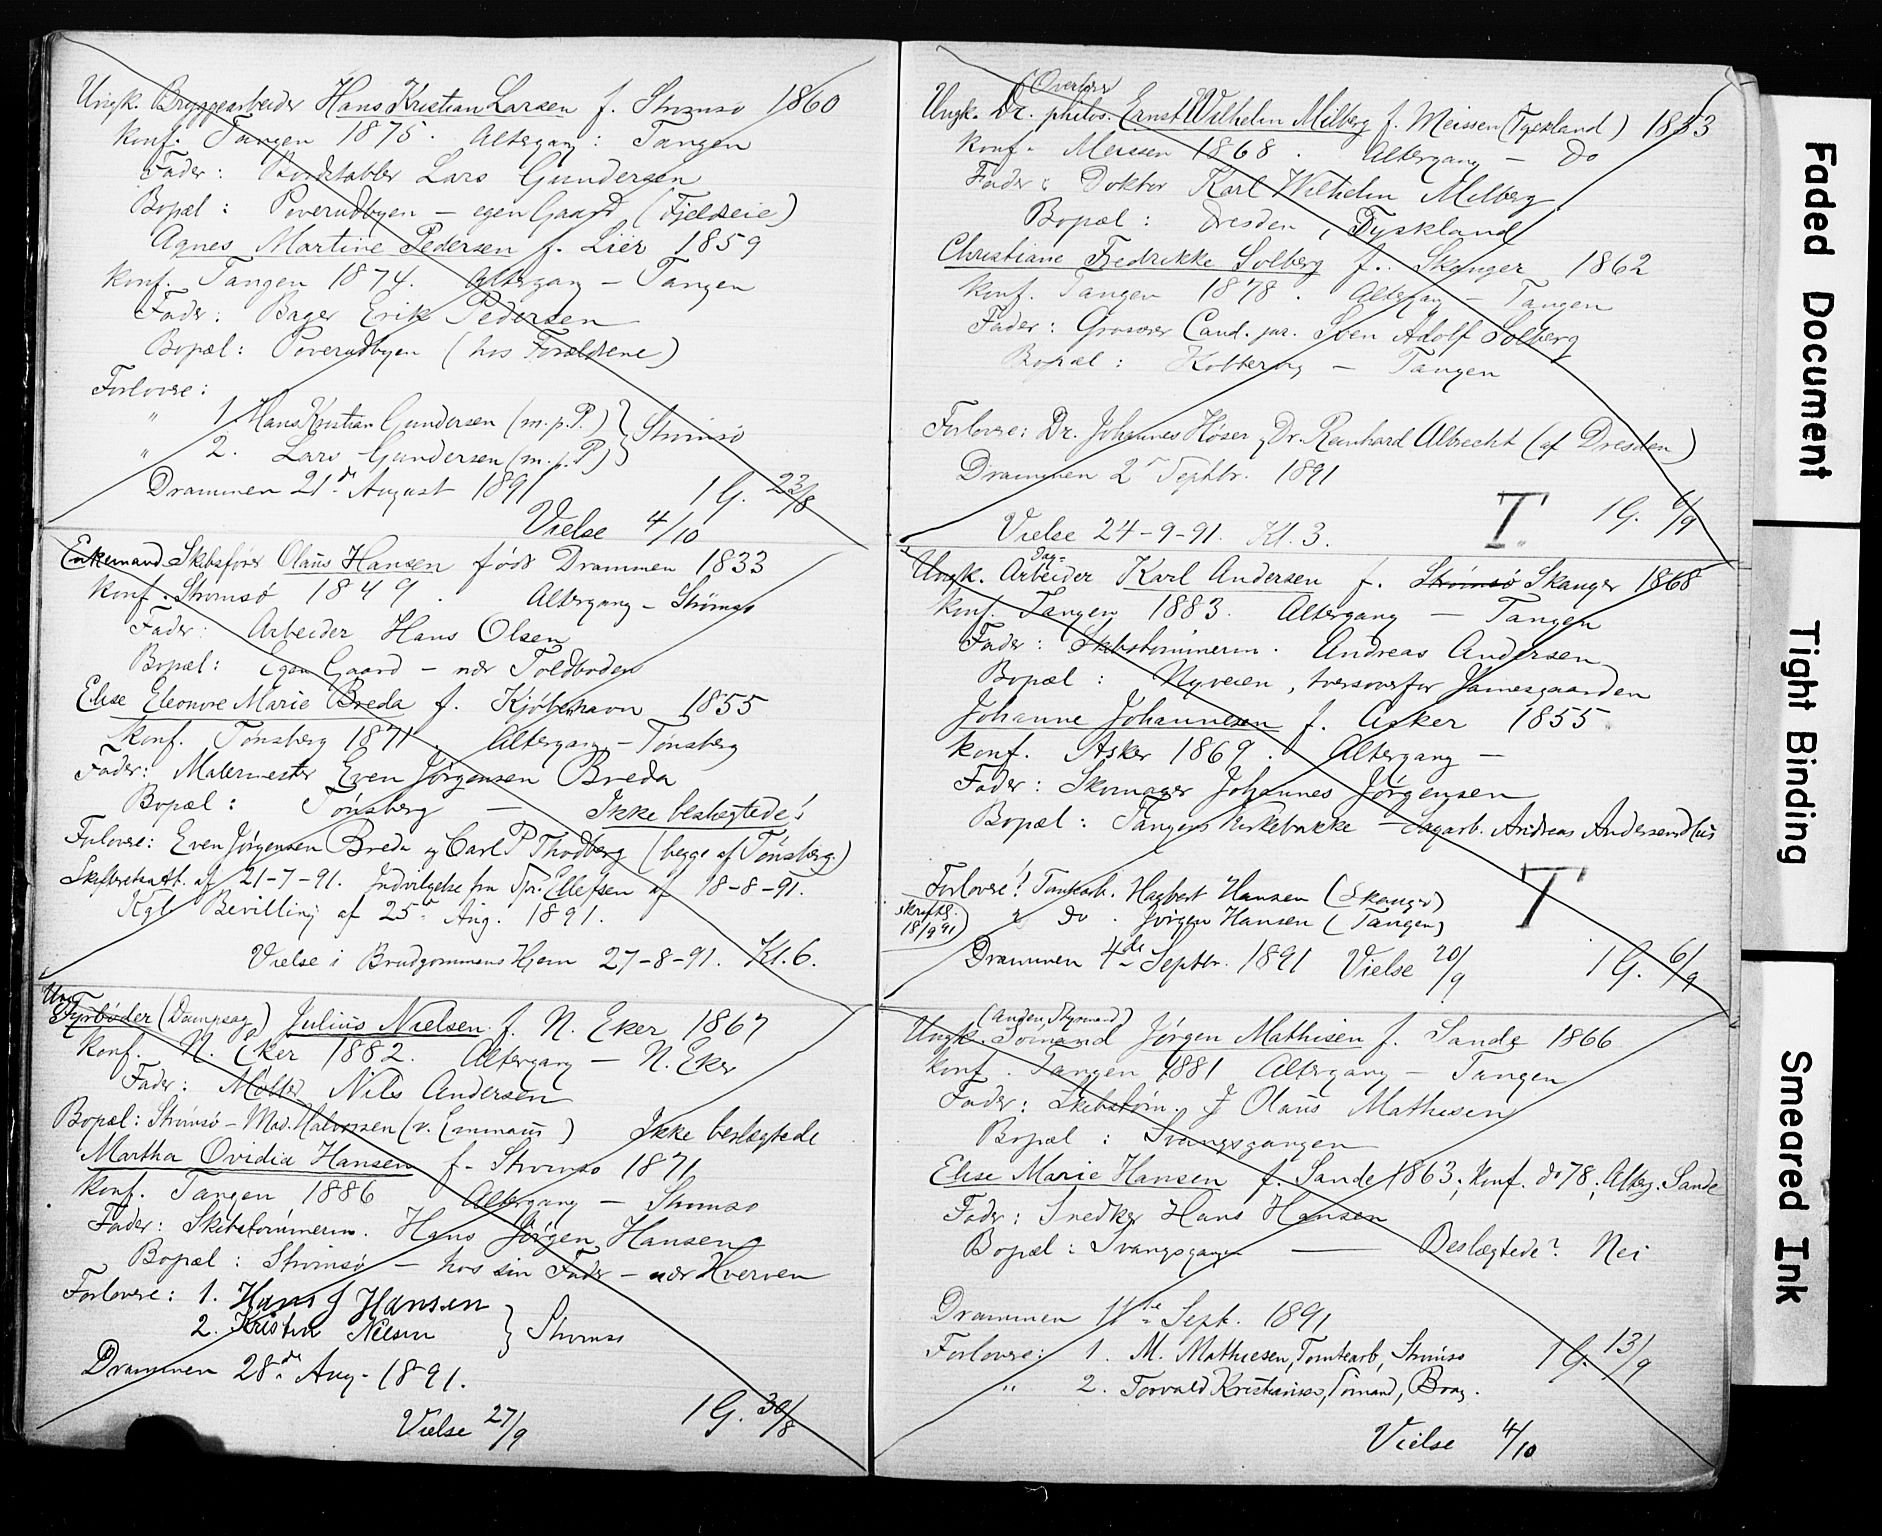 Ungk. Bryggearbeider Hans Kristian Larsen f. Strømsø 1860
Konf. Tangen 1875. Altergang: Tangen
Fader: Bordstabler Lars Gundersen
Bopæl: Poverudbyen – egen Gaard (Fjeldseie)
Agnes Martine Pedersen f. Lier 1859
Konf. Tangen 1874. Altergang – Tangen
Fader: Bager Erik Pedersen
Bopæl: Poverudbyen (hos Forældrene)
Forlovre:
" 1. Hans Kristian Gundersen (m.p.P.) } Strømsø
" 2. Lars Gundersen (m.p.P)
Drammen 21de August 1891 1 G. 23/8
Vielse 4/10
Enkemand Skibsfører Olaus Hansen født Drammen 1833
Konf. Strømsø 1849. Altergang – Strømsø
Fader: Arbeider Hans Olsen
Bopæl: Egen Gaard – nær Toldboden
Elise Eleonore Marie Breda f. Kjøbenhavn 1855
Konf. Tønsberg 1871. Altergang – Tønsberg
Fader: Malermester Even Jørgensen Breda
Bopæl: Tønsberg – Ikke beslægtede!
Forlovre: Even Jørgensen Breda og Carl P Thodberg (begge af Tønsberg)
Skifteretsatt. af 21-7-91. Indvilgelse fra Spr. Ellefsen af 18-8-91.
Kgl Bevilling af 25de Aug. 1891.
Vielse i Brudgommens Hjem 27-8-91. Kl. 6.
Ungk. Fyrbøder (Dampsag) Julius Nielsen f. N. Eker 1867
Konf. N. Eker 1882. Altergang – N. Eker
Fader: Møller Nils Andersen
Bopæl: Strømsø – Mad. Halvorsen (v. Emmaus) Ikke beslægtede
Martha Ovidia Hansen f. Strømsø 1871
Konf. Tangen 1886 Altergang – Strømsø
Fader: Skibstømmerm. Hans Jørgen Hansen
Bopæl: Strømsø – hos sin Fader – nær Hverven
Forlovre: 1. Hans J Hansen } Strømsø
2. Kristen Nilsen
Drammen 28de Aug. 1891.
Vielse 27/9 1 G. 30/8
(Overlærer
Ungk. Dr. philos. Ernst Wilhelm Milberg f. Meissen (Tyskland) 1853
Konf. Meissen 1868. Altergang – Do
Fader: Doktor Karl Wilhelm Milberg
Bopæl: Dresden, Tyskland
Christiane Fredrikke Solberg f. Skanger 1862
Konf. Tangen 1878. Altergang – Tangen
Fader: Grosserer Cand. jur. Sven Adolf Solberg
Bopæl: Kobbervig – Tangen
Forlovre: Dr. Johannes Høser og Dr. Reinhard Albrecht (af Dresden)
Drammen 2de Septbr. 1891
T. 1 G. 6/9
Vielse 24-9-91. Kl. 3.
Dag-
Ungk. Arbeider Karl Andersen f. Strømsø Skanger 1868
Konf. Tangen 1883. Altergang – Tangen
Fader: Skibstømmerm. Andreas Andersen
Bopæl: Nyveien, tversoverfor Jamesgaarden
Johanne Johannesen f. Asker 1855
Konf. Asker 1869. Altergang –
Fader: Skomager Johannes Jørgensen
Bopæl: Tangens Kirkebakke – Sagarb. Andreas Andersens Hus
Forlovre! Tomtearb. Hagbart Hansen (Skanger) T
Skriftl. 18/9 91) " do. Jørgen Hansen (Tangen)
Drammen 4de Septbr. 1891 Vielse 20/9 1 G. 6/9
(Anden Styrmand)
Ungk. Sømand Jørgen Mathisen f. Sande 1866
Konf. Tangen 1881 Altergang – Tangen
Fader: Skibstøm. J Olaus Mathisen
Bopæl: Svangsgangen
Elise Marie Hansen f. Sande 1863; Konf. do 78; Alterg. Sande
Fader: Snedker Hans Hansen
Bopæl: Svangsgangen — Beslægtede? Nei
Drammen 11te Sept. 1891
Forlovre: 1. M. Mathiesen, Tomtearb, Strømsø 1 G. 13/9
" 2. Torvald Kristiansen, Sømand, Brag.
Vielse 4/10
Faded Document
Tight Binding
Smeared Ink